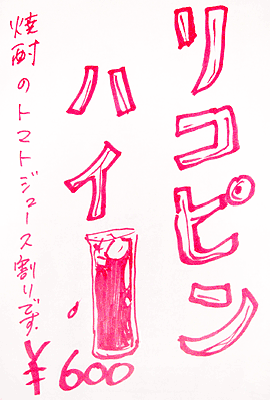 リコピン
ハイ
焼酎のトマトジュース割りです。
¥600